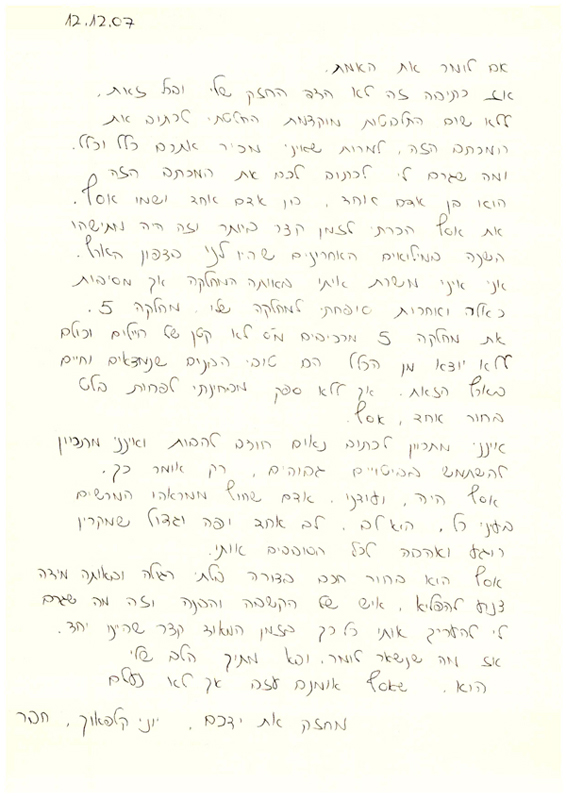 12.12.07
אם לומר את האמת.
אז כתיבה זה לא הצד החזק שלי ובכל זאת,
ללא שום התלבטות מוקדמת החלטתי לכתוב את
המכתב הזה, למרות שאיני מכיר אתכם כלל וכלל.
ומה שגרם לי לכתוב לכם את המכתב הזה
הוא בן אדם אחד, בן אדם אחד ושמו אסף.
את אסף הכרתי לזמן קצר ביותר וזה היה מתישהו
השנה במילואים האחרונים שהיו לנו בצפון הארץ.
אני איני משרת איתו באותה המחלקה אך מסיבות
כאלה ואחרות סופחתי למחלקה שלו. מחלקה 5.
את מחלקה 5 מרכיבים מס' לא קטן של חיילים וכולם
ללא יוצא מן הכלל הם טובי הבנים שנמצאים וחיים
בארץ הזאת. אך ללא ספק מבחינתי לפחות בלט
בחור אחד, אסף.
אינני מתכוון לכתוב נאום חוצב להבות ואינני מתכוון
להשתמש בביטויים גבוהים, רק אומר כך.
אסף היה, ועודנו. אדם שחוץ ממראהו המרשים
בעיני כל, הוא לב. לב אחד יפה וגדול שמקרין
רוגע ואהבה לכל הסובבים אותו.
אסף הוא בחור חכם בצורה בלתי רגילה ובאותה מידה
צנוע להפליא, איש של הקשבה והבנה וזה מה שגרם
לי להעריך אותו כל כך בזמן המאוד קצר שהיינו יחד.
אז מה שנשאר לומר, ובא מתוך הלב שלי
הוא. שאסף אומנם עזב אך לא נעלם
מחזק את ידכם, יוני קלפאוך, חבר